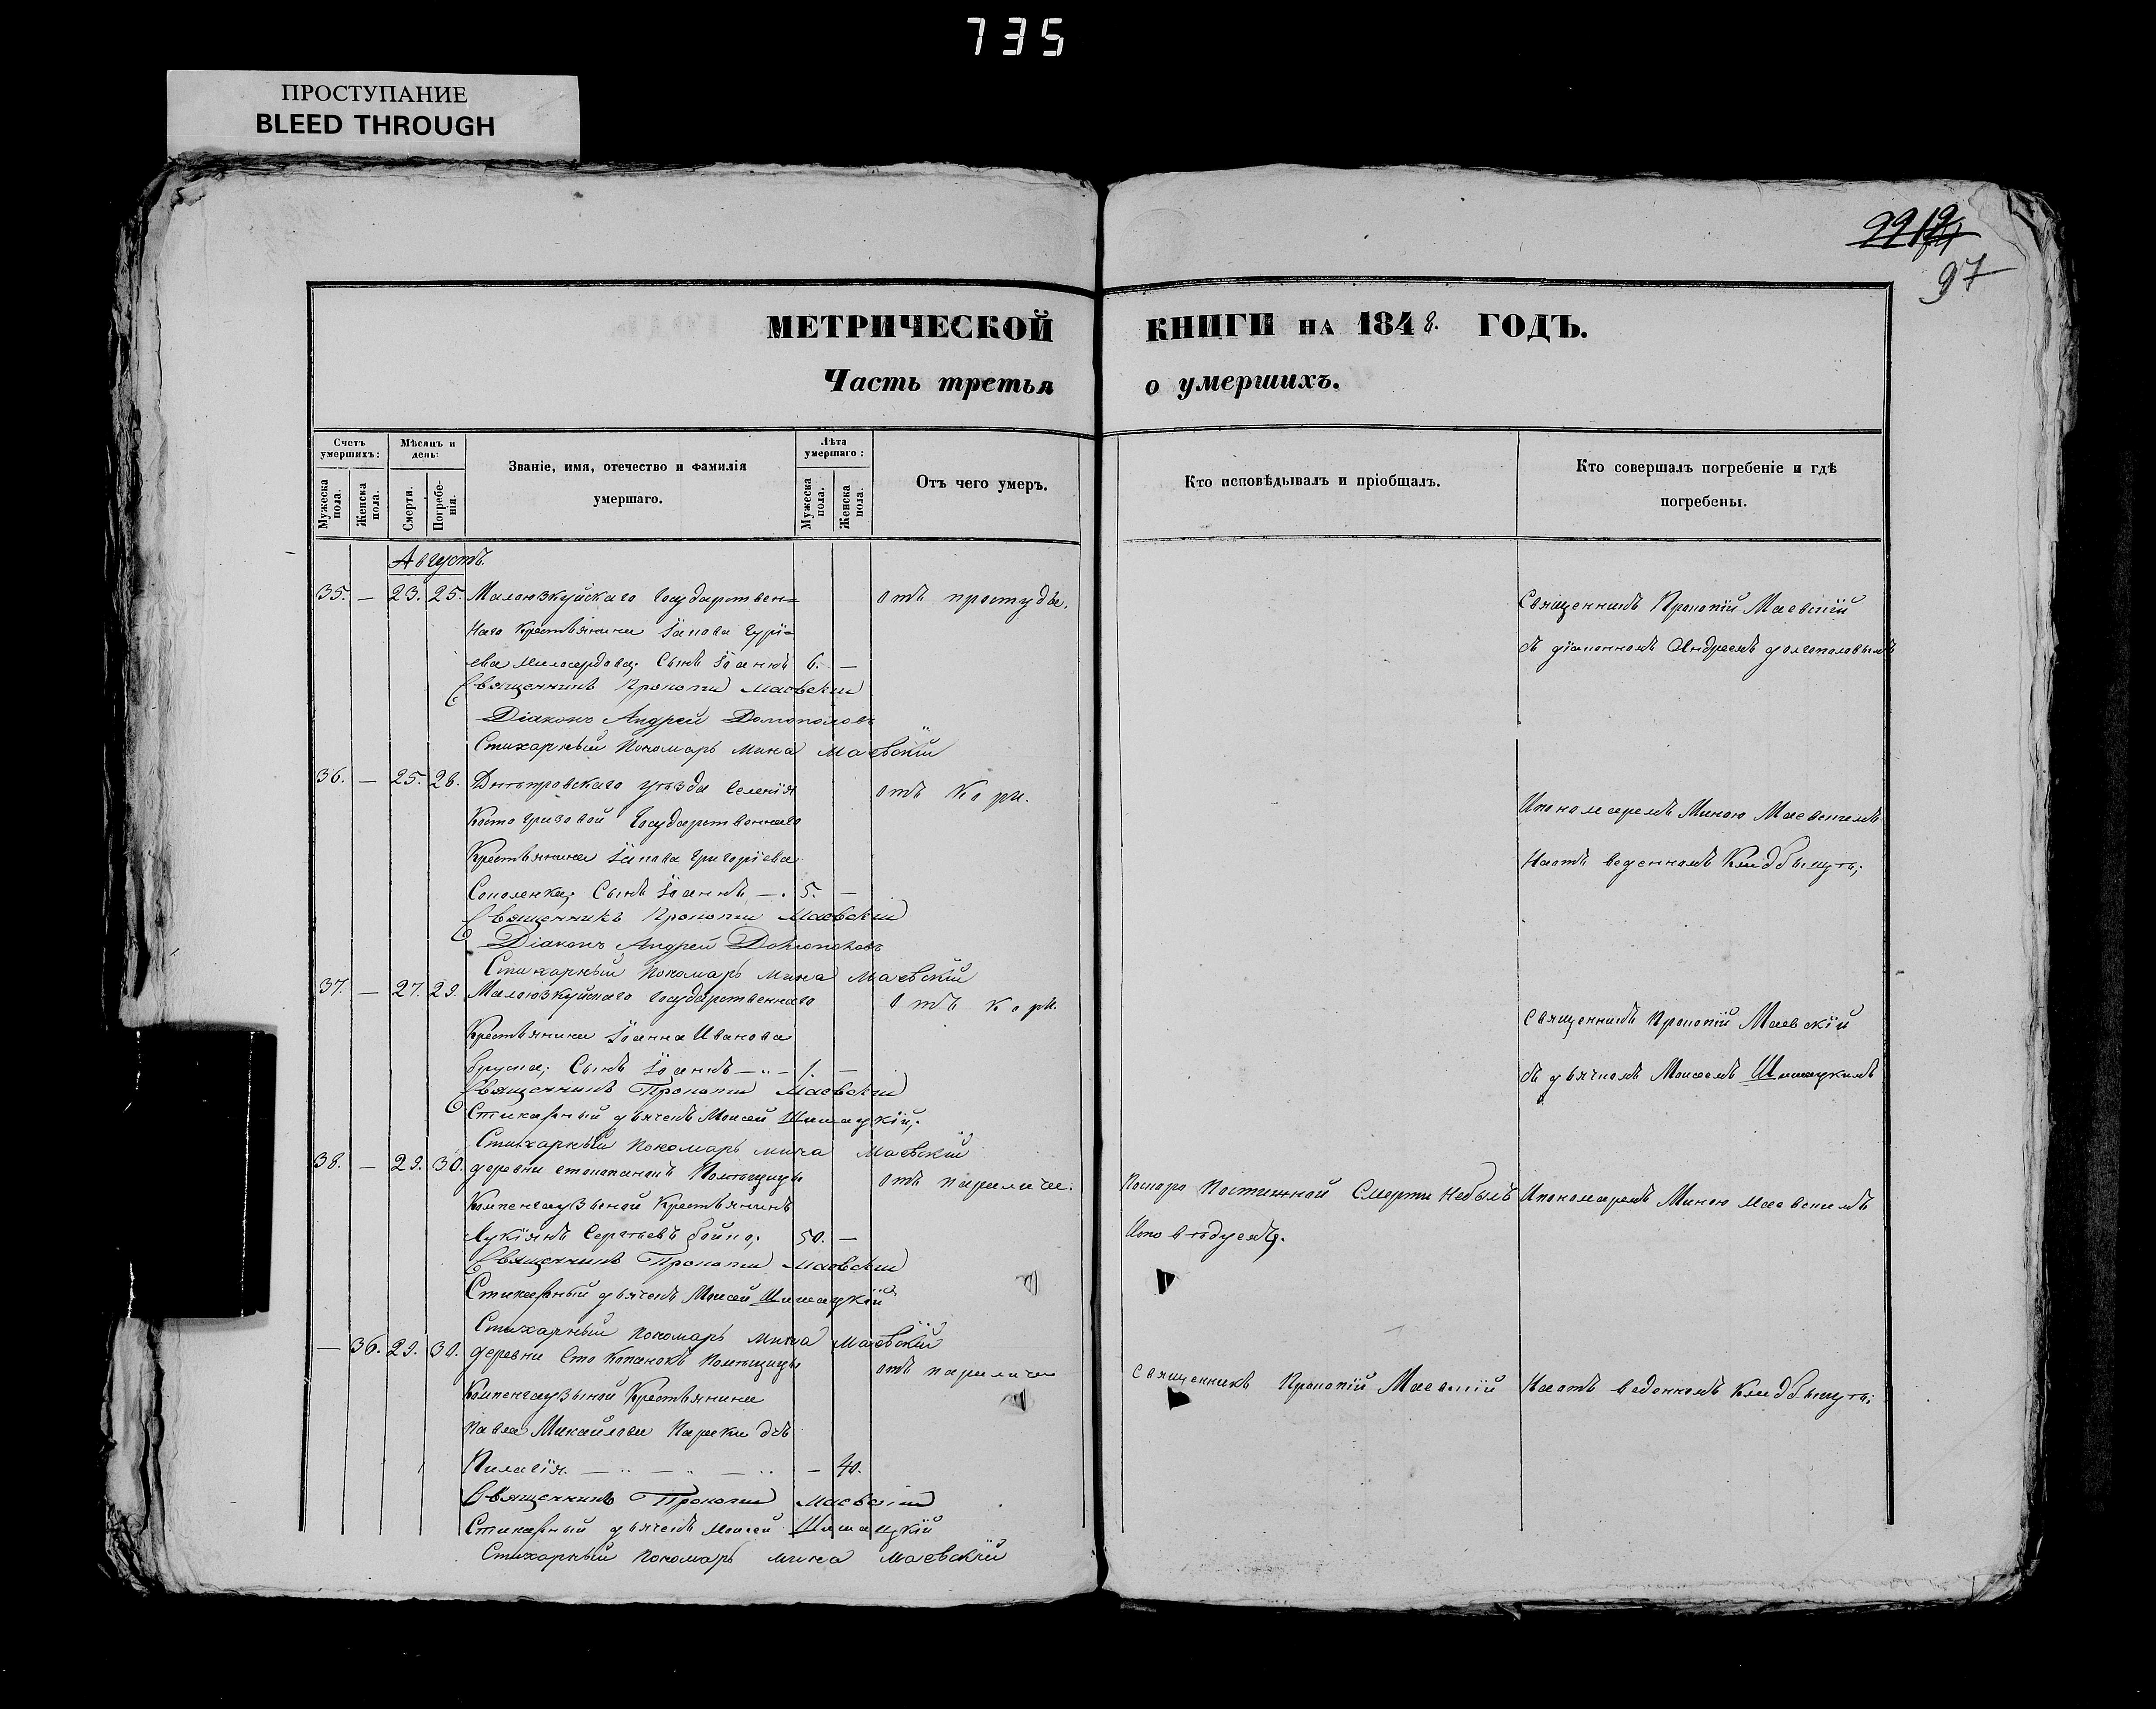 735
ПРОСТУПАНИЕ
BLEED THROUGH
97
МЕТРИЧЕСКОЙ КНИГИ НА 1848. ГОДЪ.
Часть третья о умершихъ.
Счетъ умершихъ:
Мужеска пола.
Женска пола.
Мѣсяцъ и день:
Смерти.
Погребе-нія.
Званіе, имя, отечество и фамилія
умершаго.
Лѣта умершаго:
Мужеска пола.
Женска пола.
Отъ чего умеръ.
Кто исповѣдывалъ и пріобщалъ.
Кто совершалъ погребеніе и гдѣ
погребены.
Августъ
35. — 23. 25. Малоюзкуйскаго Государствен= отъ простуды. Священникъ Прокопій Маевскій
наго Крестьянина Іакова Гурі= съ діакономъ Андреемъ Долгополовымъ
ева Милосердова; Сынъ Іоаннъ 6. —
Священникъ Прокопій Маевскій
Діаконъ Андрей Долгополовъ
Стихарный Пономарь Мина Маевскій
36. — 25. 28. Днѣпровскаго уѣзда Селенія отъ Кори. Ипономаремъ Миною Маевскимъ
Костогризовой Государственнаго
Крестьянина Іакова Григоріева На отъ веденномъ Кладбищѣ;
Соколенка; Сынъ Іоаннъ — 5. —
Священникъ Прокопій Маевскій
Діаконъ Андрей Долгополовъ
Стихарный Пономарь Мина Маевскій
37. — 27. 29. Малоюзкуйскаго Государственнаго отъ кори. Священникъ Прокопій Маевскій
Крестьянина Іоанна Иванова
Сынъ Іоаннъ — 1. — съ дьячкомъ Моисеемъ Шишацкимъ
Священникъ Прокопій Маевскій
Стихарный дьячекъ Моисей Шишацкій;
Стихарный Пономарь Мина Маевскій
38. — 29. 30. деревни стокопанокъ Помѣщицы отъ паралича. Поскоро Постижной Смерти Небылъ Ипономаремъ Миною Маевскимъ
Компенгаузеной Крестьянинъ
Лукіянъ Сергѣевъ Бойко; 50. —
Священникъ Прокопій Маевскій
Стихарный дьячекъ Моисей Шишацкій
Стихарный Пономарь Мина Маевскій
— 36. 29. 30. деревни Сто Копанокъ Помѣщицы отъ паралича Священникъ Прокопій Маевскій На отъ веденномъ Кладбищѣ;
Компенгаузеной Крестьянина
Павла Михайлова
Пилагія. — — — 40.
Священникъ Прокопій Маевскій
Стихарный дьячекъ Моисей Шишацкій
Стихарный Пономарь Мина Маевскій